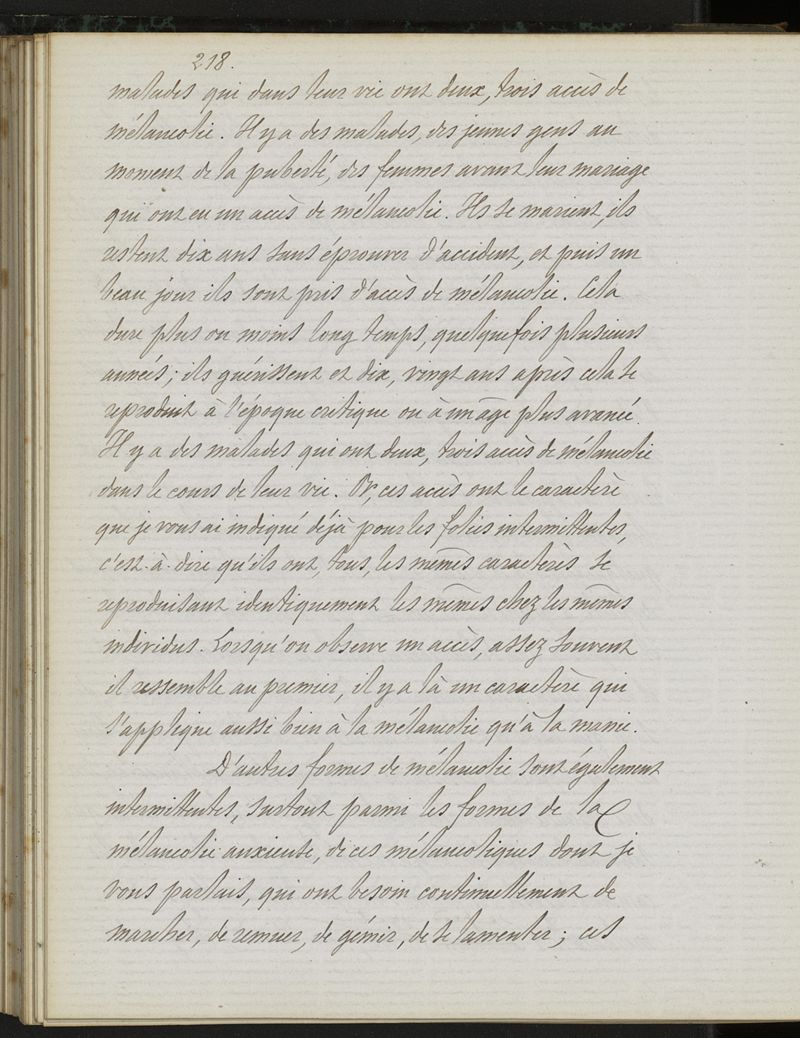 218.
malades qui dans leur vie ont deux, trois accès de
mélancolie. Il y a des malades, des jeunes gens au
moment de la puberté, des femmes avant leur mariage
qui ont eu un accès de mélancolie. Ils se marient, ils
restent dix ans sans éprouver d'accident, et puis un
beau jour ils sont pris d'accès de mélancolie. Cela
dure plus ou moins long temps, quelquefois plusieurs
années; ils guérissent et dix, vingt ans après cela se
reproduit à l'époque critique ou à un âge plus avancé.
Il y a des malades qui ont deux, trois accès de mélancolie
dans le cours de leur vie. Or, ces accès ont le caractère
que je vous ai indiqué déjà pour les folies intermittentes,
c'est-à-dire qu'ils ont, tous, les mêmes caractères se
reproduisant identiquement les mêmes chez les mêmes
individus. Lorsqu'on observe un accès, assez souvent
il ressemble au premier, il y a là un caractère qui
s'applique aussi bien à la mélancolie qu'à la manie.
D'autres formes de mélancolie sont également
intermittentes, surtout parmi les formes de la
mélancolie anxieuse, de ces mélancoliques dont je
vous parlais, qui ont besoin continuellement de
marcher, de remuer, de gémir, de se lamenter; ces